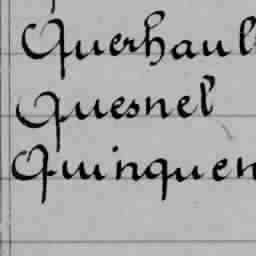 Querhaul
Quesnel
Quinquen